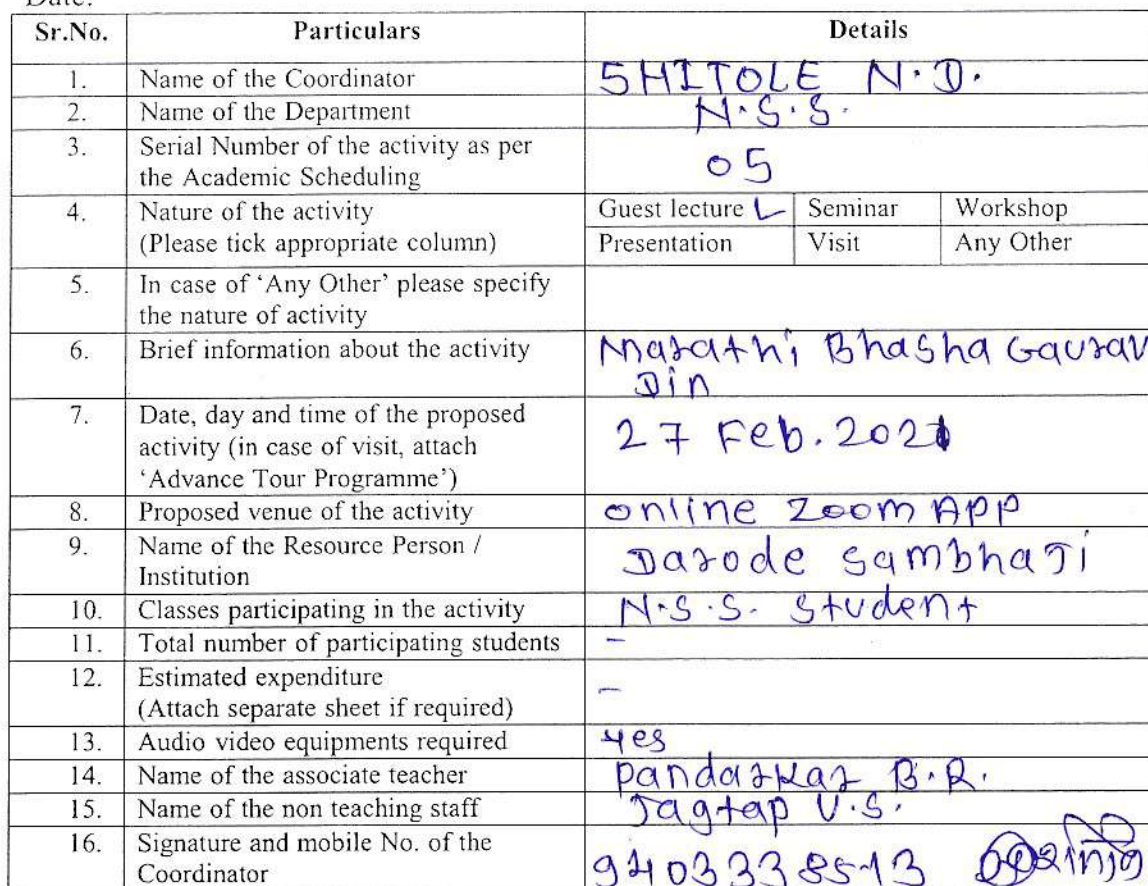 Date:
Sr.No. Particulars Details
1. Name of the Coordinator SHITOLE N.D.
2. Name of the Department N.S.S.
3. Serial Number of the activity as per
the Academic Scheduling 05
4. Nature of the activity Guest lecture ✓ Seminar Workshop
(Please tick appropriate column) Presentation Visit Any Other
5. In case of ‘Any Other’ please specify
the nature of activity
6. Brief information about the activity Marathi Bhasha Gaurav
Din
7. Date, day and time of the proposed
activity (in case of visit, attach 27 Feb. 2021
‘Advance Tour Programme’)
8. Proposed venue of the activity online Zoom App
9. Name of the Resource Person / Darode Sambhaji
Institution
10. Classes participating in the activity N.S.S. Student
11. Total number of participating students –
12. Estimated expenditure –
(Attach separate sheet if required)
13. Audio video equipments required yes
14. Name of the associate teacher Pandarkar B.R.
15. Name of the non teaching staff Jagtap V.S.
16. Signature and mobile No. of the
Coordinator 9403338513